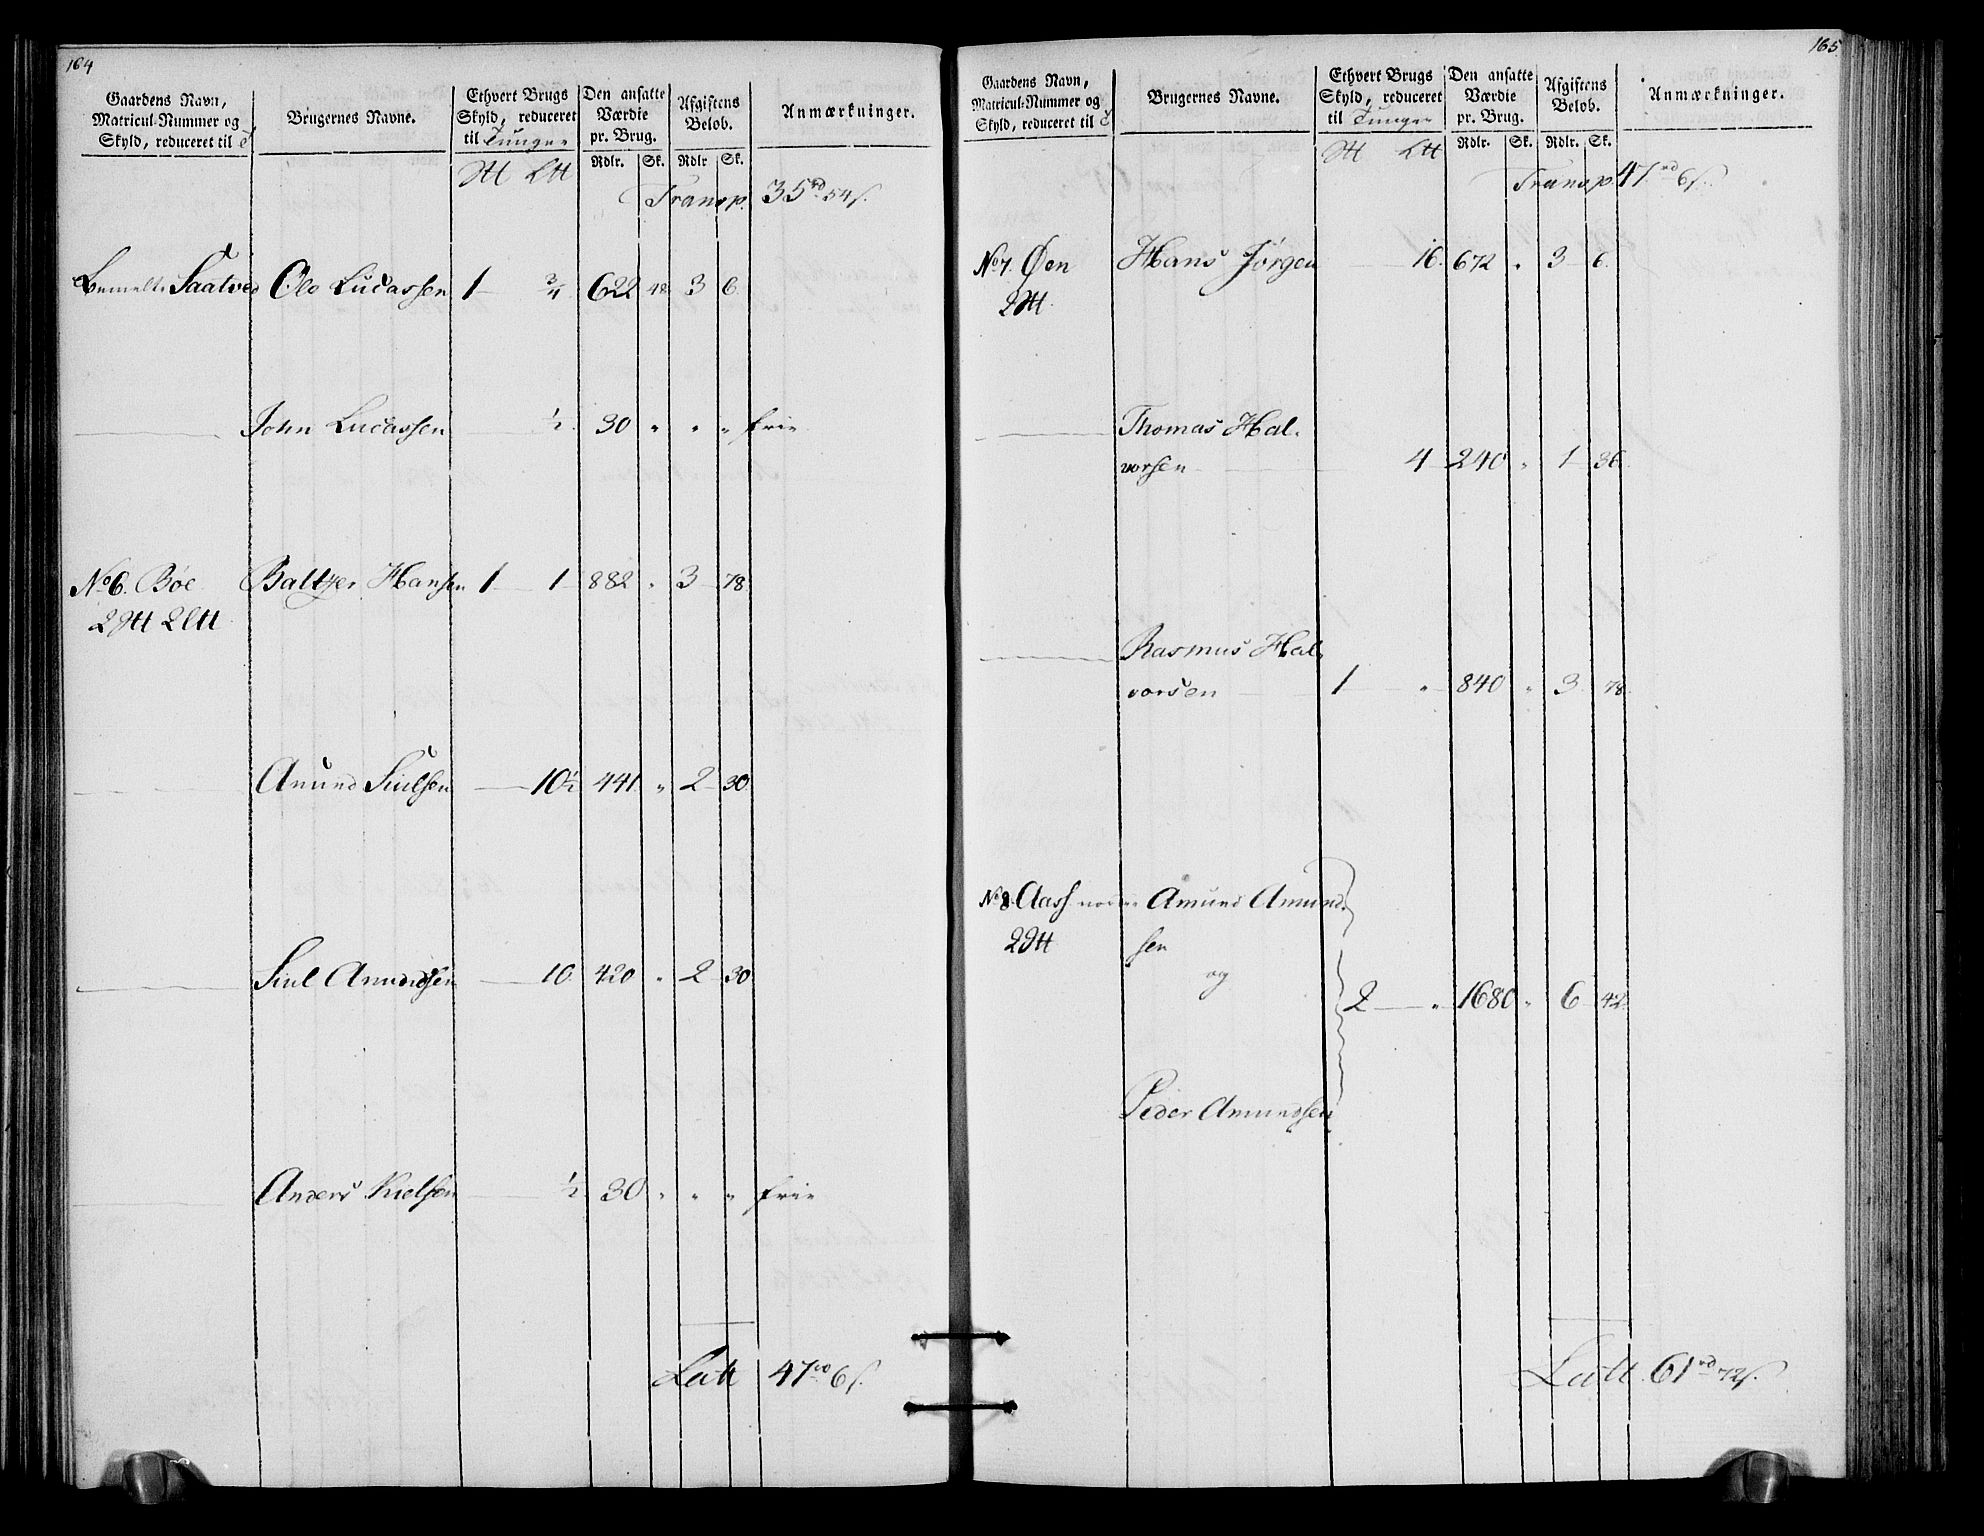 164
Gaardens Navn, Matricul-Nummer og Skyld, reduceret til T
Brugernes Navne.
Ethvert Brugs Skyld, reduceret til Tunger
Den ansatte Værdie pr. Brug.
Afgiftens Beløb.
Anmærkninger.
Rdlr. Sk. Rdlr Sk.
Transp. 35 rd 54 s.
Saatved Ole Lucassen 1 3/4 622 48 3 6
John Lucassen 1/2 30 " " " frie
No 6. Bøe Baltzer Hansen 1 1 882 " 3 78
Anund Siulsen 10 1/2 441 " 2 30
Siul Anundsen 10 420 " 2 30
Anders Nielsen 1/2 30 " " " frie
Latt 47 rd 6 s.
165
Gaardens Navn, Matricul-Nummer og Skyld, reduceret til T
Brugernes Navne.
Ethvert Brugs Skyld, reduceret til Tunger
Den ansatte Værdie pr. Brug.
Afgiftens Beløb.
Anmærkninger.
Rdlr. Sk. Rdlr. Sk.
Transp. 47 rd 6 s.
No 7. Øen Hans Jørgen 16 672 " 3 6
Thomas Hal-
vorsen 4 240 " 1 36
Rasmus Hal-
vorsen 1 " 840 " 3 78
No 8. Aass Amund Amund-
sen
og
2 " 1680 " 6 42
Peder Amundsen
Latt 61 rd 72 s.